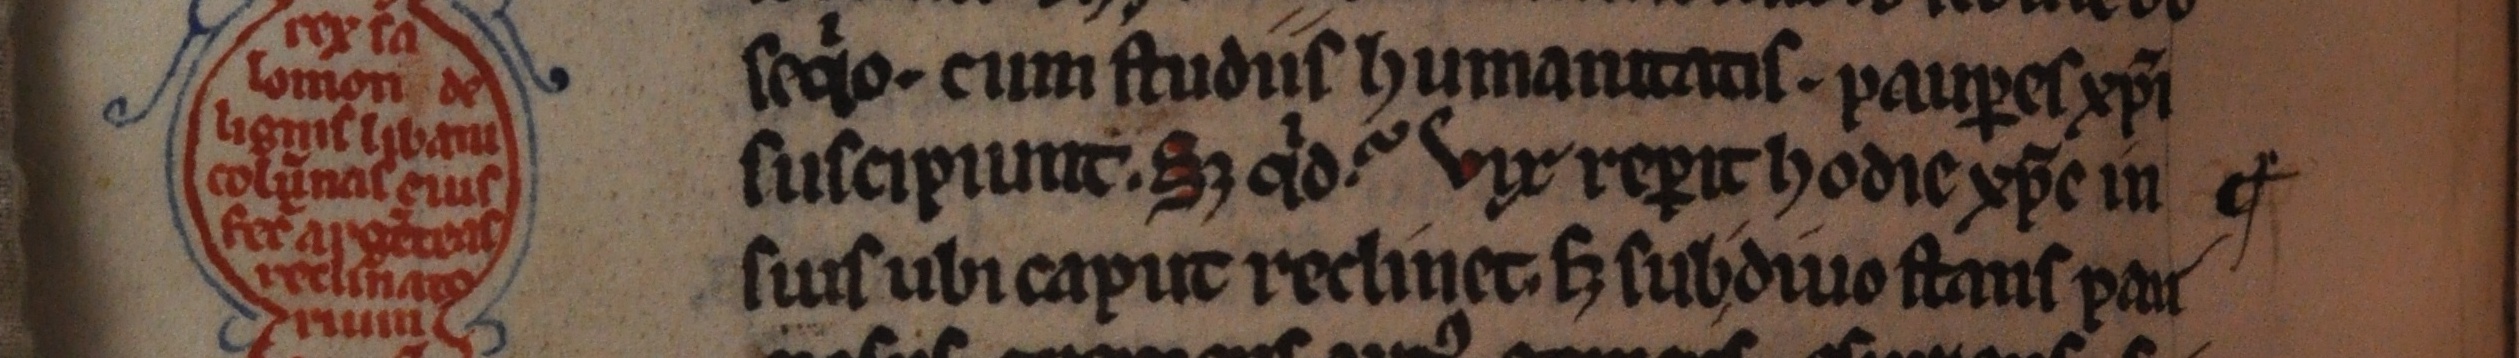 rex sa
lomon de
lignis libani
colūnas eius
fec̄ argēteas
reclinato
rium
seq̇o. cum studiis humanitatis. pauꝑes xp̄i
suscipiunt. Sꝫ qͥd? Vix reꝑit hodie xp̄c in
suis ubi caput reclinet. sꝫ sub diuo stans pau